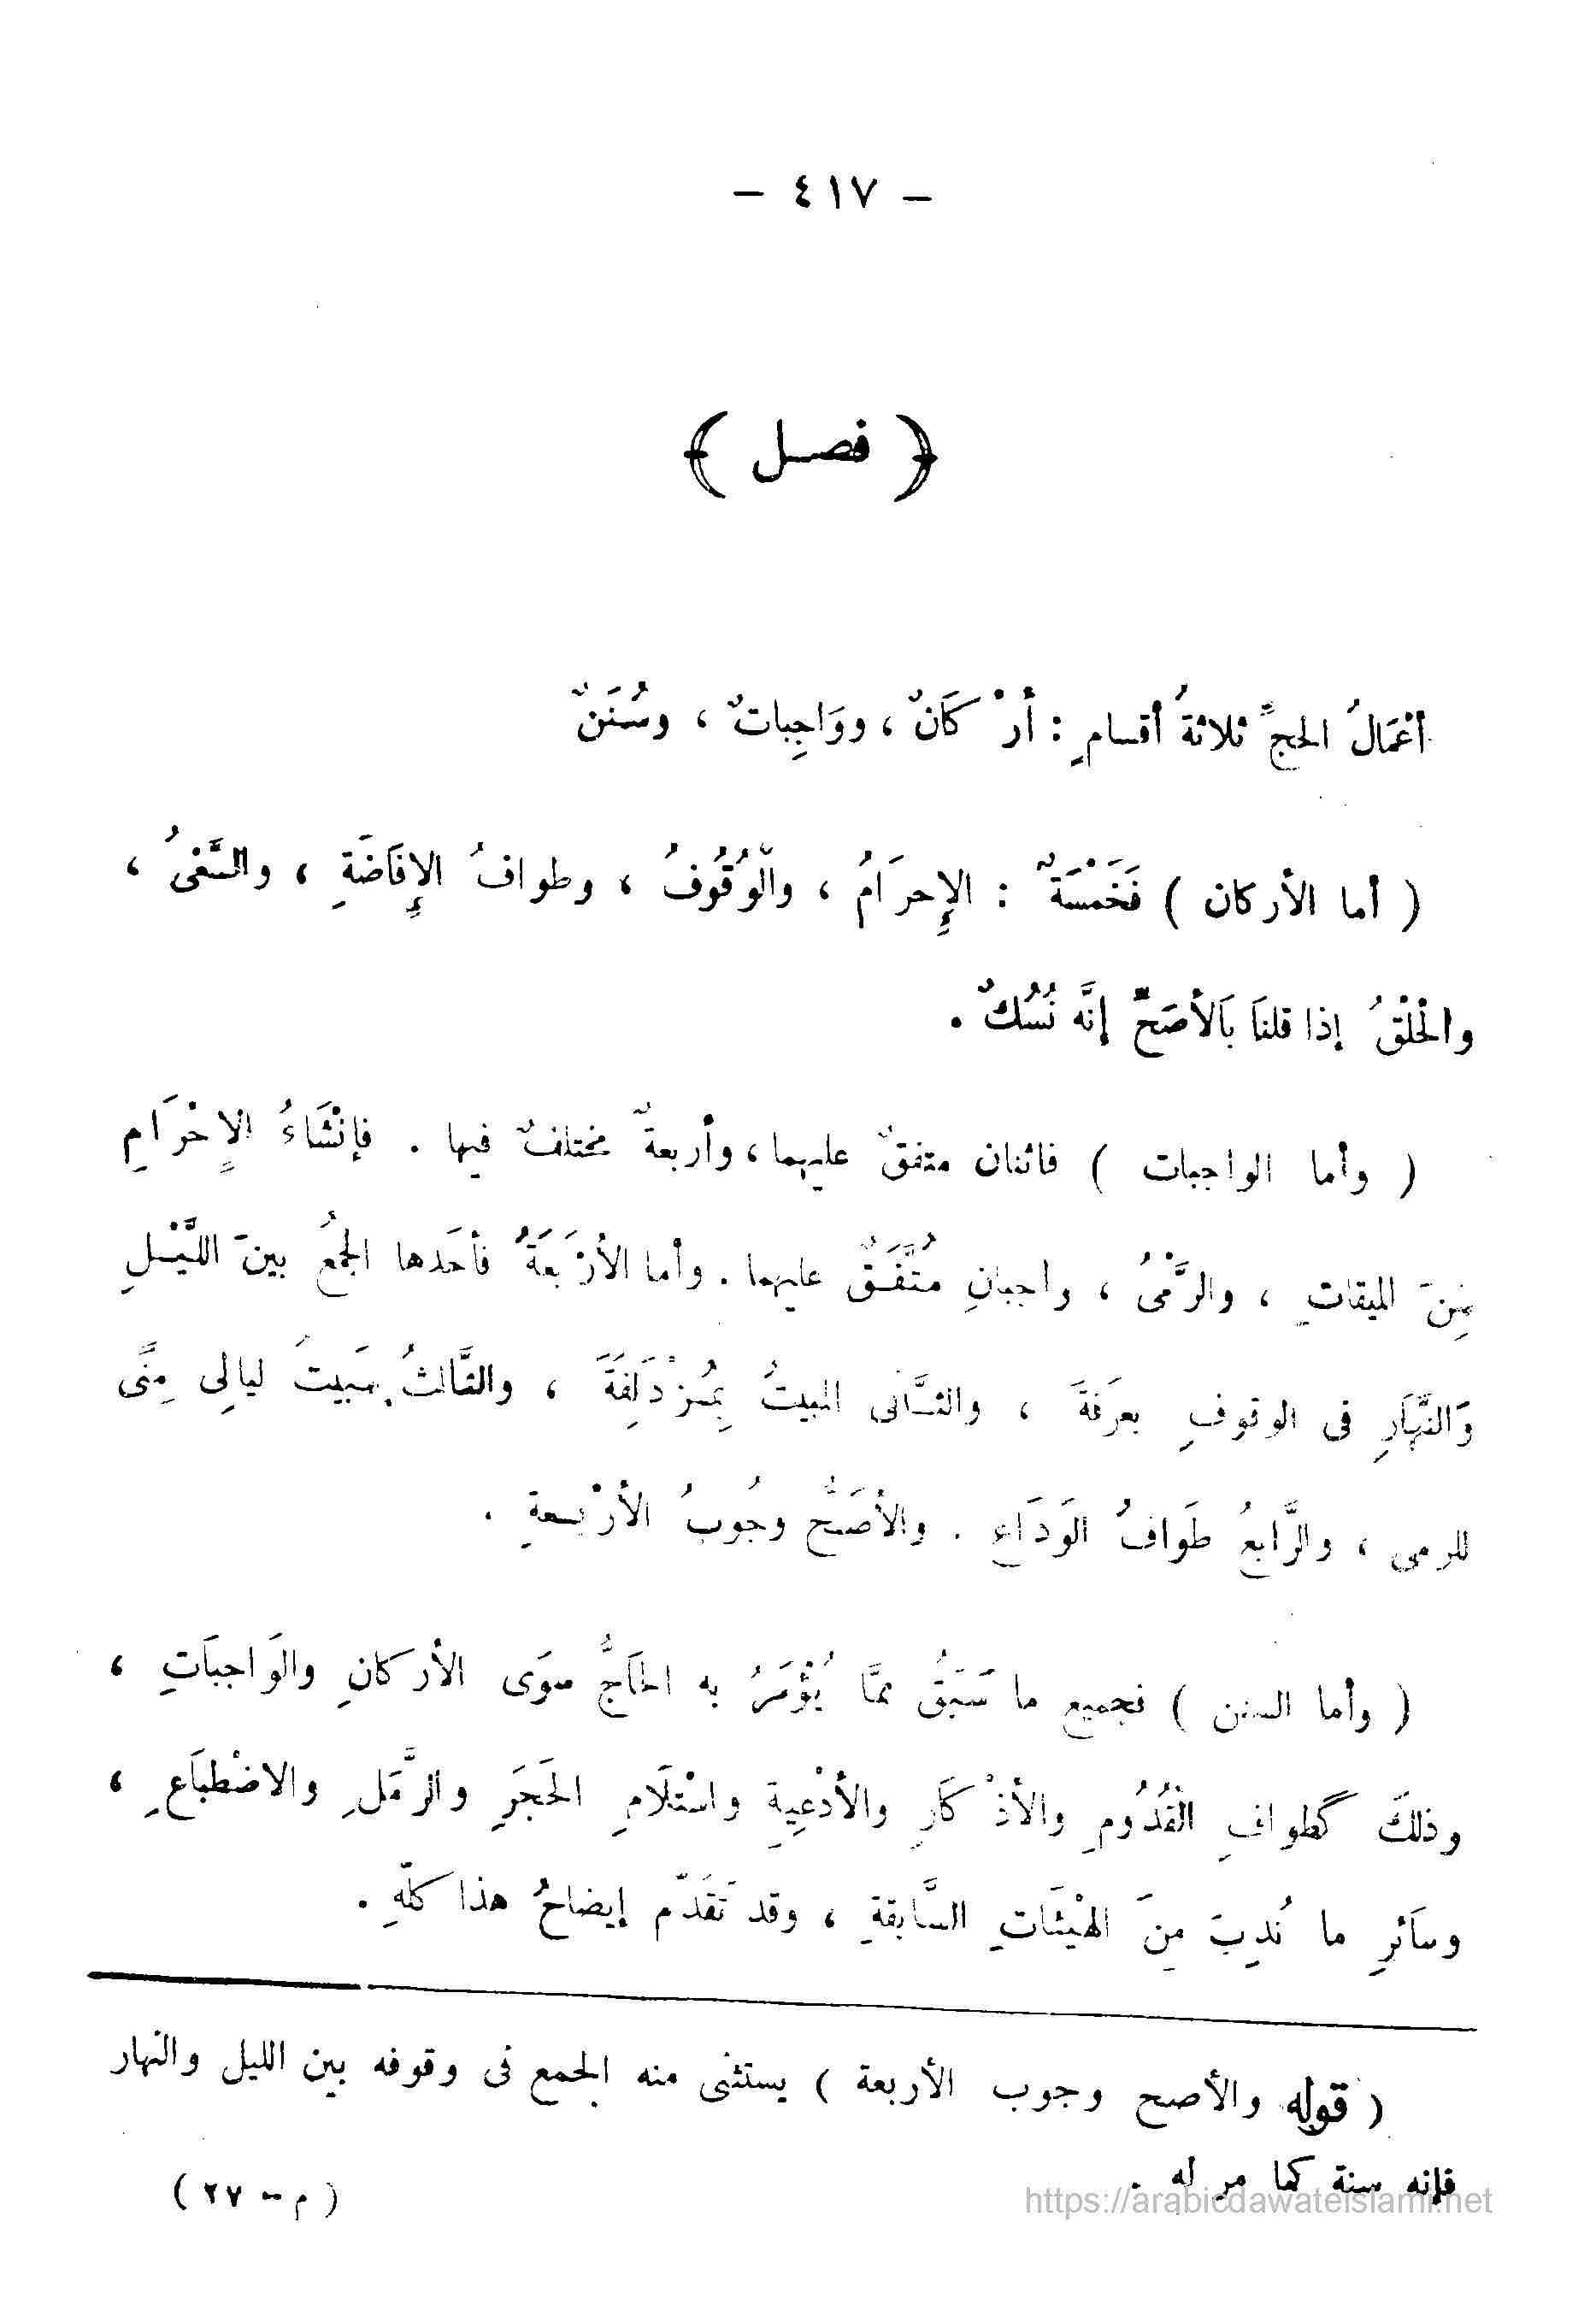 — ٤١٧ —
﴿ فصـل ﴾
أعْمَالُ الحجِّ ثلاثةُ أقسامٍ : أرْكَانٌ ، ووَاجِباتٌ ، وسُنَنٌ
( أما الأركان ) فَخَمْسَةٌ : الإِحرَامُ ، والْوُقُوفُ ، وطوافُ الإِفَاضَةِ ، والسَّعْىُ ،
والْحلْقُ إذا قلنَا بَالأصَحِّ إنَّه نُسُكٌ .
( وأما الواجبات ) فاثنان متفقٌ عليهما ، وأربعةٌ مختلفٌ فيها . فإنْشَاءُ الإِحْرَامِ
مِنَ الميقاتِ ، والرَّمْىُ ، واجبانِ مُتَّفَـقٌ عليهما . وأما الأرْبَعَةُ فأحَدها الجمْعُ بينَ اللَّيْـلِ
وَالنَّهَارِ فى الوقوفِ بعرَفةَ ، والثـَّانى المبيتُ بِمُزْدَلِفَةَ ، والثَّالثُ مَبيتُ ليالِى مِنًى
للرمى ، والرَّابعُ طَوَافُ الوَدَاعِ . والأصَحُّ وجُوبُ الأرْبـعةِ .
( وأما السنن ) فجميع ما سَبَقَ مِمَّا يُؤْمَرُ به الحَاجُّ سوَى الأركانِ والوَاجبَاتِ ،
وذلكَ كطوافِ الْقُدُومِ والأذْكَارِ والأدْعِيةِ واسْتلَامِ الحَجَرِ والرَّمَلِ والاضْطبَاعِ ،
وسَائرِ ما نُدِبَ مِنَ الهَيْئَاتِ السَّابقةِ ، وقد تَقَدّم إيضاحُ هذا كلّهِ .
( قوله والأصح وجوب الأربعة ) يستثنى منه الجمع فى وقوفه بين الليل والنهار
فإنه سنة كما مر له .
( م - ٢٧ )
https://arabicdawateislami.net